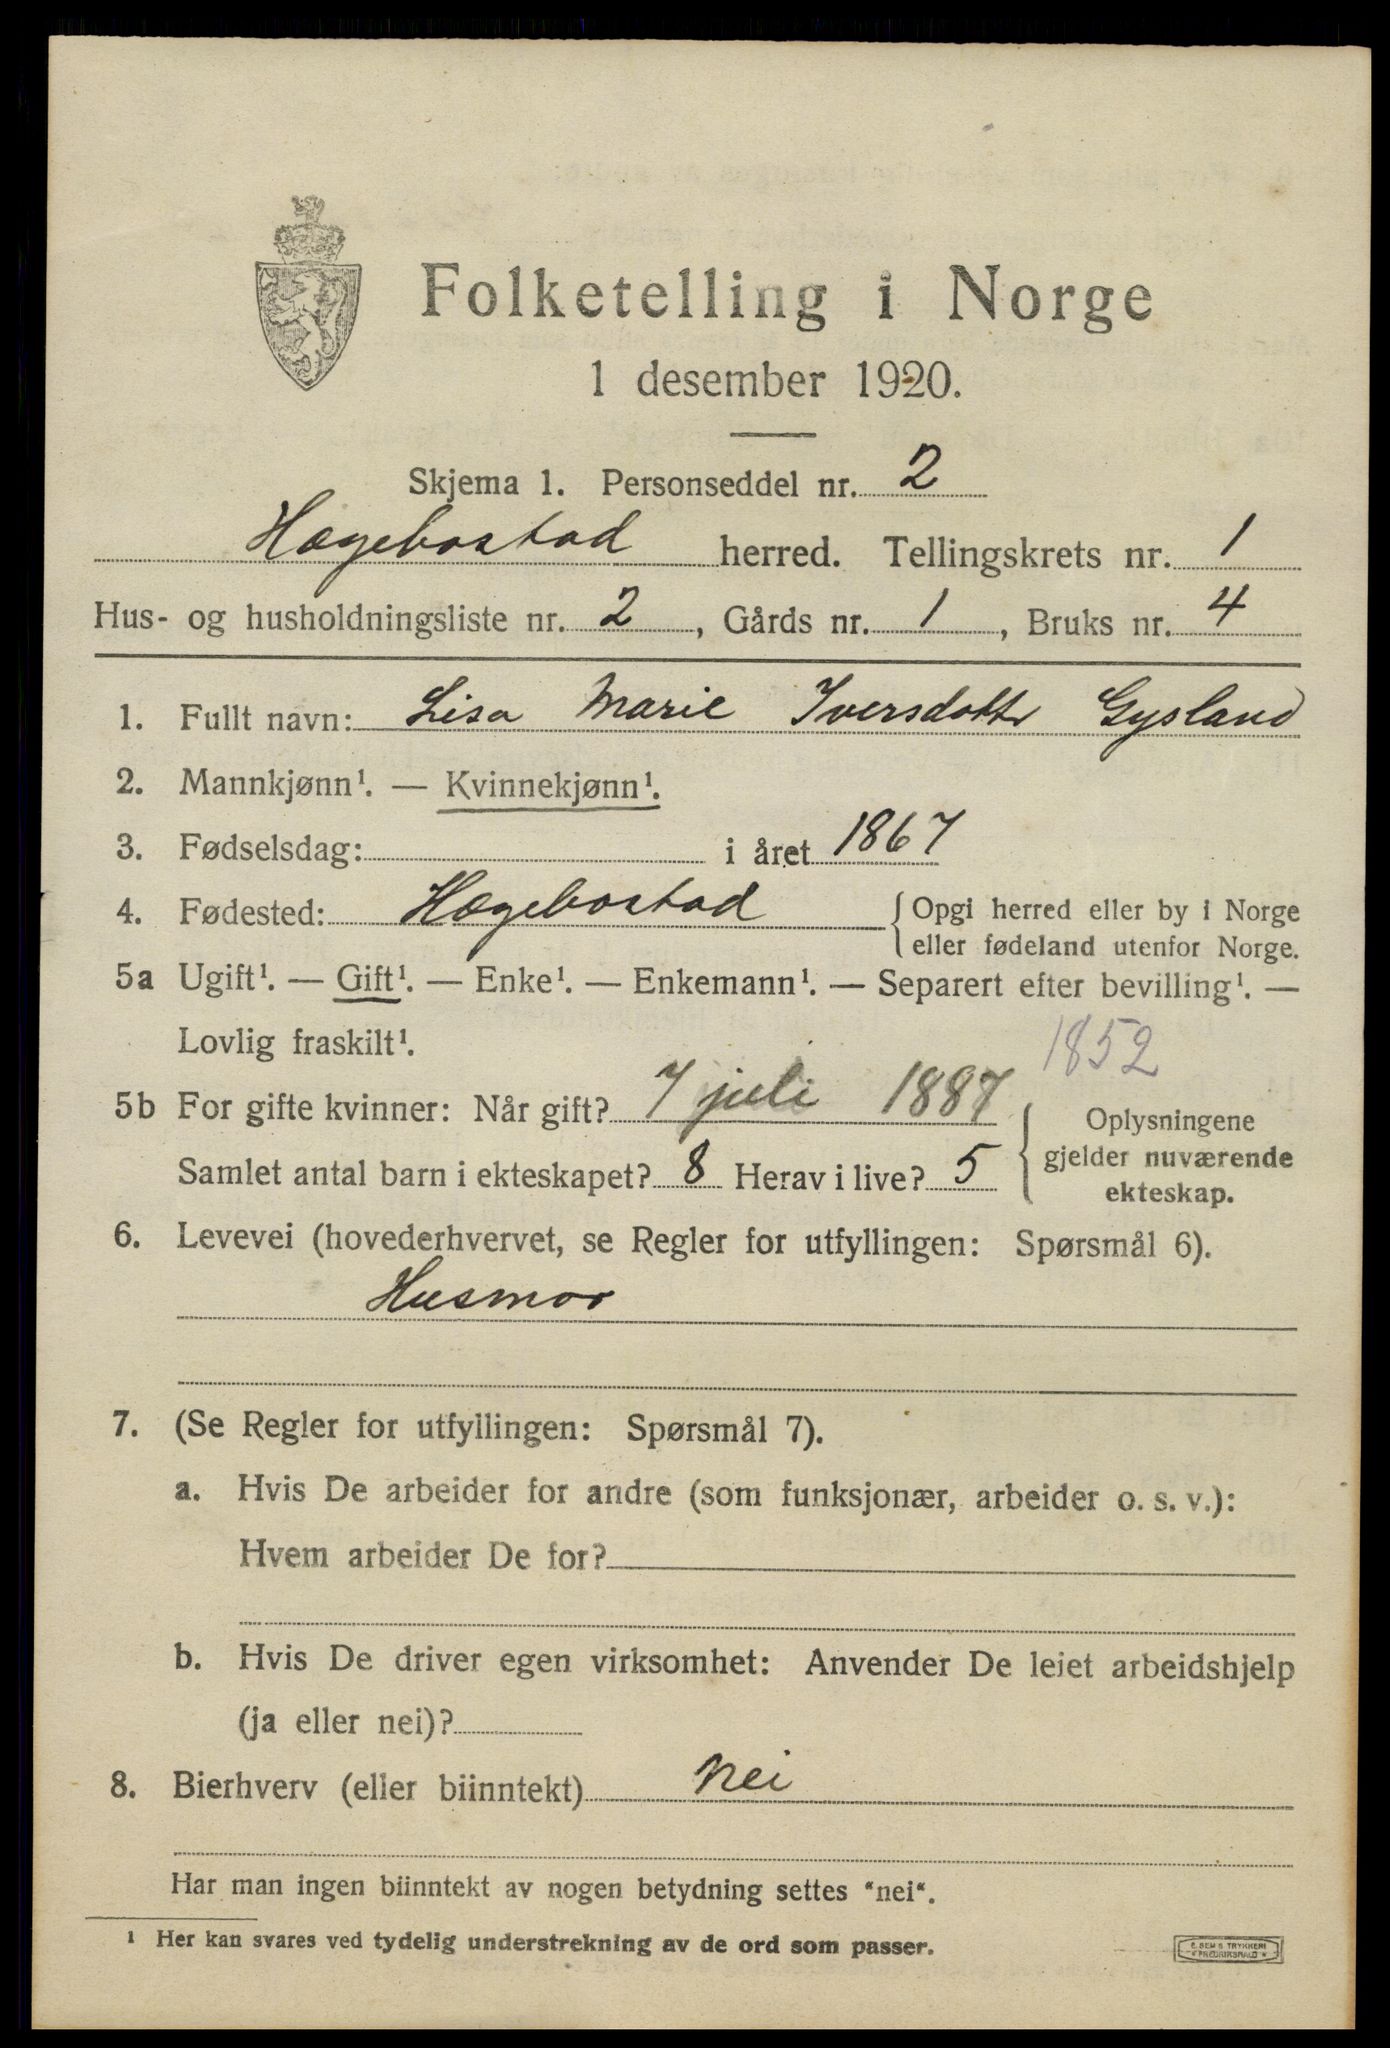 Folketelling i Norge
1 desember 1920.
Skjema 1. Personseddel nr. 2
Hægebostad herred. Tellingskrets nr. 1
Hus- og husholdningsliste nr. 2, Gårds nr. 1, Bruks nr. 4
1. Fullt navn: Lisa Marie Iversdottr Gysland
2. Mannkjønn¹. — Kvinnekjønn¹.
3. Fødselsdag: i året 1867
4. Fødested: Hægebostad { Opgi herred eller by i Norge
eller fødeland utenfor Norge.
5a Ugift¹. — Gift¹. — Enke¹. — Enkemann¹. — Separert efter bevilling¹. —
Lovlig fraskilt¹.
1852
5b For gifte kvinner: Når gift? 7 juli 1887 { Oplysningene
gjelder nuværende
ekteskap.
Samlet antal barn i ekteskapet? 8 Herav i live? 5
6. Levevei (hovederhvervet, se Regler for utfyllingen: Spørsmål 6).
Husmor
7. (Se Regler for utfyllingen: Spørsmål 7).
a. Hvis De arbeider for andre (som funksjonær, arbeider o. s. v.):
Hvem arbeider De for?
b. Hvis De driver egen virksomhet: Anvender De leiet arbeidshjelp
(ja eller nei)?
8. Bierhverv (eller biinntekt) Nei
Har man ingen biinntekt av nogen betydning settes "nei".
¹ Her kan svares ved tydelig understrekning av de ord som passer.
E. SEM'S TRYKKERI
* FREDRIKSHALD *